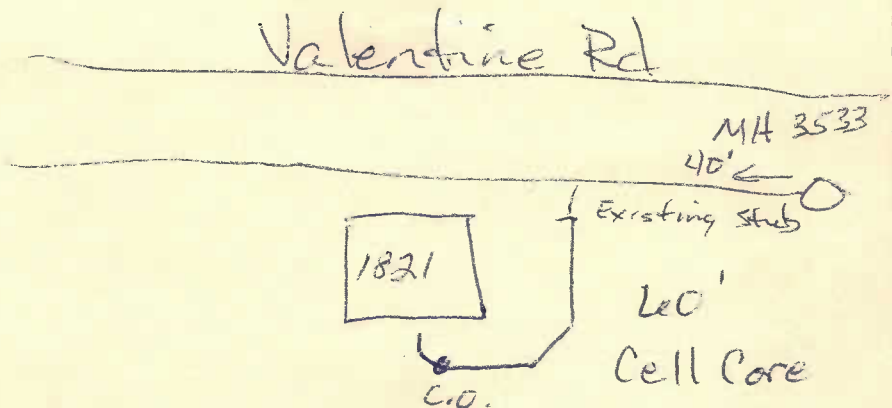 Valentine Rd
MH 3533
40'
Existing Stub
1821
40'
Cell Core
C.O.